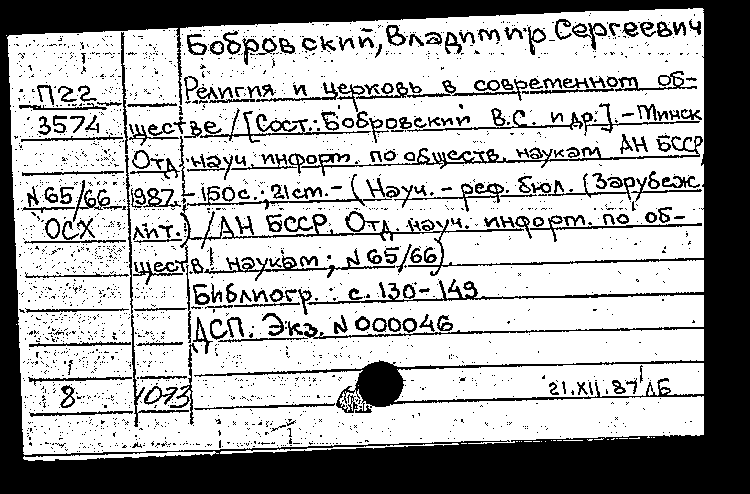 Бобровский, Владимир Сергеевич
П22 Религия и церковь в современном об-
3574 ществе / [Сост.: Бобровский В.С. и др.]. - Минск
Отд. науч. информ. по обществ. наукам АН БССР,
N 65/66 1987. - 150 с.; 21 ст. - (Науч. - реф. бюл. (Зарубеж.
ОСХ лит.) / АН БССР. Отд. науч. информ. по об-
ществ. наукам; N 65/66).
Библиогр.: с. 130-149
ДСП. Экз. N 000046
8 1073 21.XII.87 ЛБ